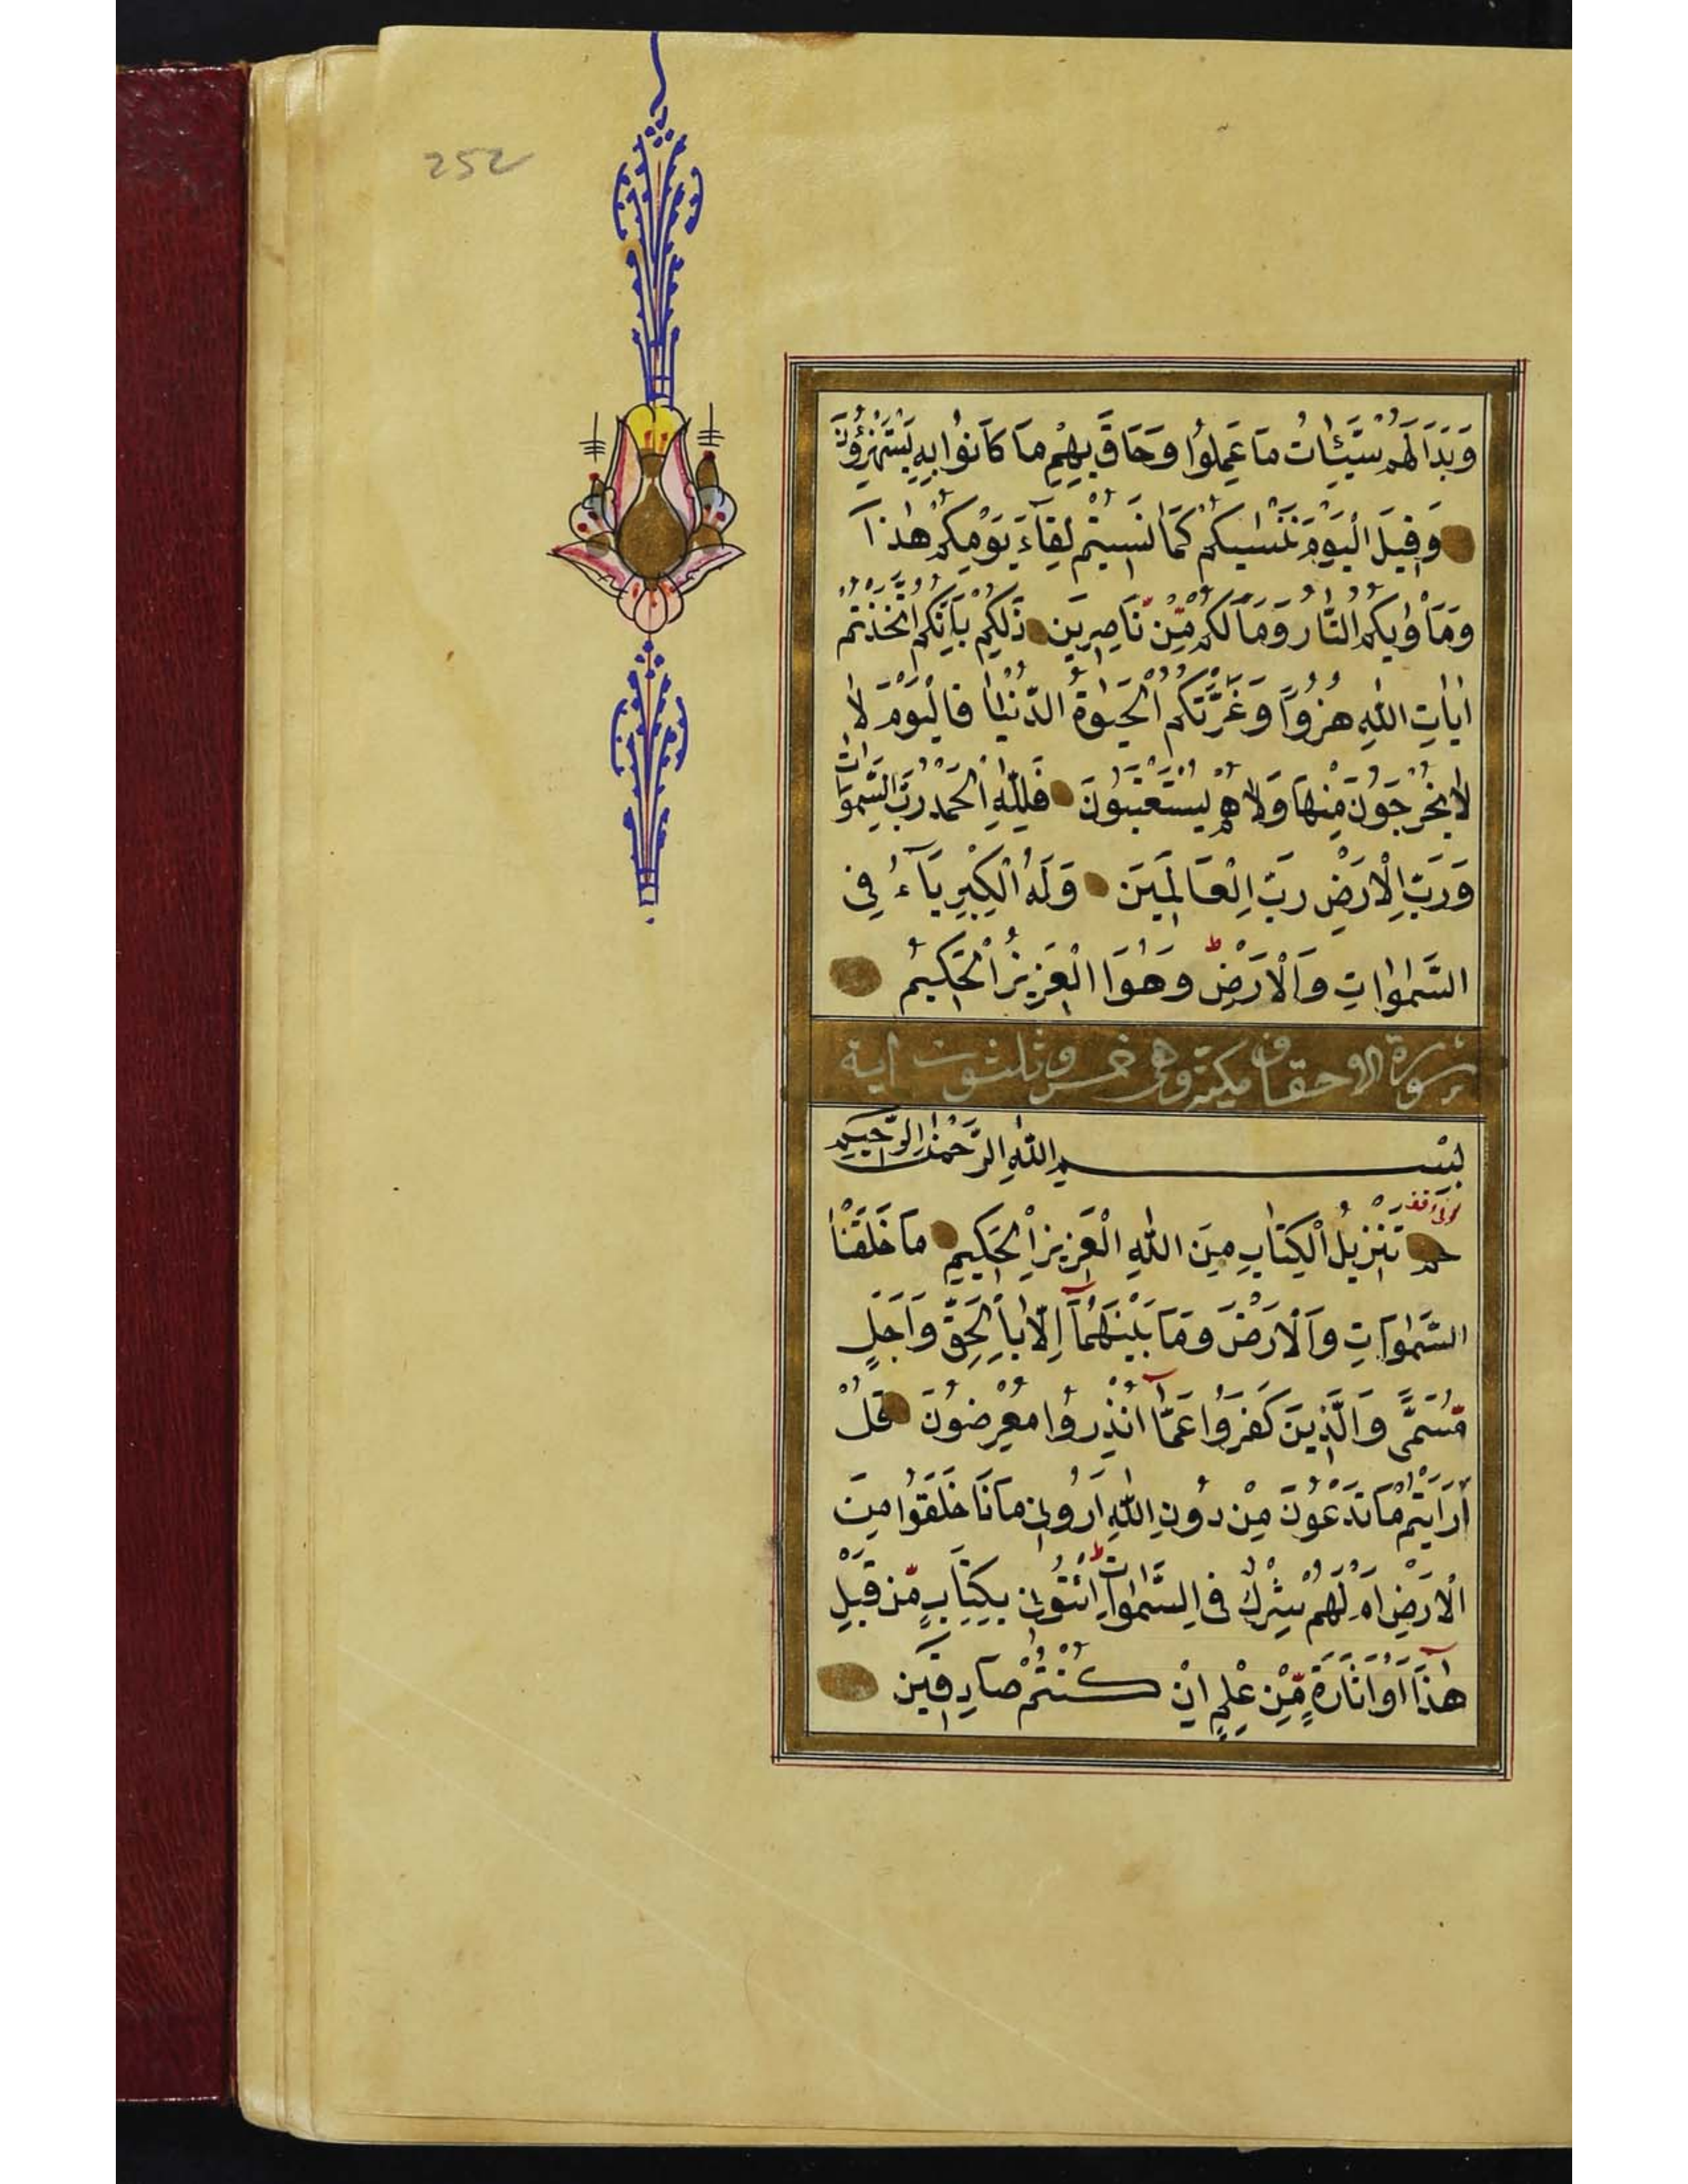 252
وَبَدَا لَهُمْ سَيِّئَاتُ مَا عَمِلُوا وَحَاقَ بِهِمْ مَا كَانُوا بِهِ يَسْتَهْزِؤُنَ
وَقِيلَ الْيَوْمَ نَنْسٰيكُمْ كَمَا نَسِيتُمْ لِقَآءَ يَوْمِكُمْ هٰذَا
وَمَأْوٰيكُمُ النَّارُ وَمَا لَكُمْ مِّنْ نَاصِرِينَ ذٰلِكُمْ بِاَنَّكُمُ اتَّخَذْتُمْ
اٰيَاتِ اللّٰهِ هُزُوًا وَغَرَّتْكُمُ الْحَيٰوةُ الدُّنْيَا فَالْيَوْمَ لَا
لَا يُخْرَجُونَ مِنْهَا وَلَا هُمْ يُسْتَعْتَبُونَ فَلِلّٰهِ الْحَمْدُ رَبِّ السَّمٰوَاتِ
وَرَبِّ الْاَرْضِ رَبِّ الْعَالَمِينَ وَلَهُ الْكِبْرِيَآءُ فِى
السَّمٰوَاتِ وَالْاَرْضِ ط وَهُوَ الْعَزِيزُ الْحَكِيمُ
سورة الاحقاف مكية وهى خمس وثلثون اية
بِسْمِ اللّٰهِ الرَّحْمٰنِ الرَّحِيمِ
حم تَنْزِيلُ الْكِتَابِ مِنَ اللّٰهِ الْعَزِيزِ الْحَكِيمِ مَا خَلَقْنَا
السَّمٰوَاتِ وَالْاَرْضَ وَمَا بَيْنَهُمَآ اِلَّا بِالْحَقِّ وَاَجَلٍ
مُّسَمًّى وَالَّذِينَ كَفَرُوا عَمَّآ اُنْذِرُوا مُعْرِضُونَ قُلْ
اَرَاَيْتُمْ مَا تَدْعُونَ مِنْ دُونِ اللّٰهِ اَرُونِى مَاذَا خَلَقُوا مِنَ
الْاَرْضِ اَمْ لَهُمْ شِرْكٌ فِى السَّمٰوَاتِ ط ائْتُونِى بِكِتَابٍ مِّنْ قَبْلِ
هٰذَآ اَوْ اَثَارَةٍ مِّنْ عِلْمٍ اِنْ كُنْتُمْ صَادِقِينَ